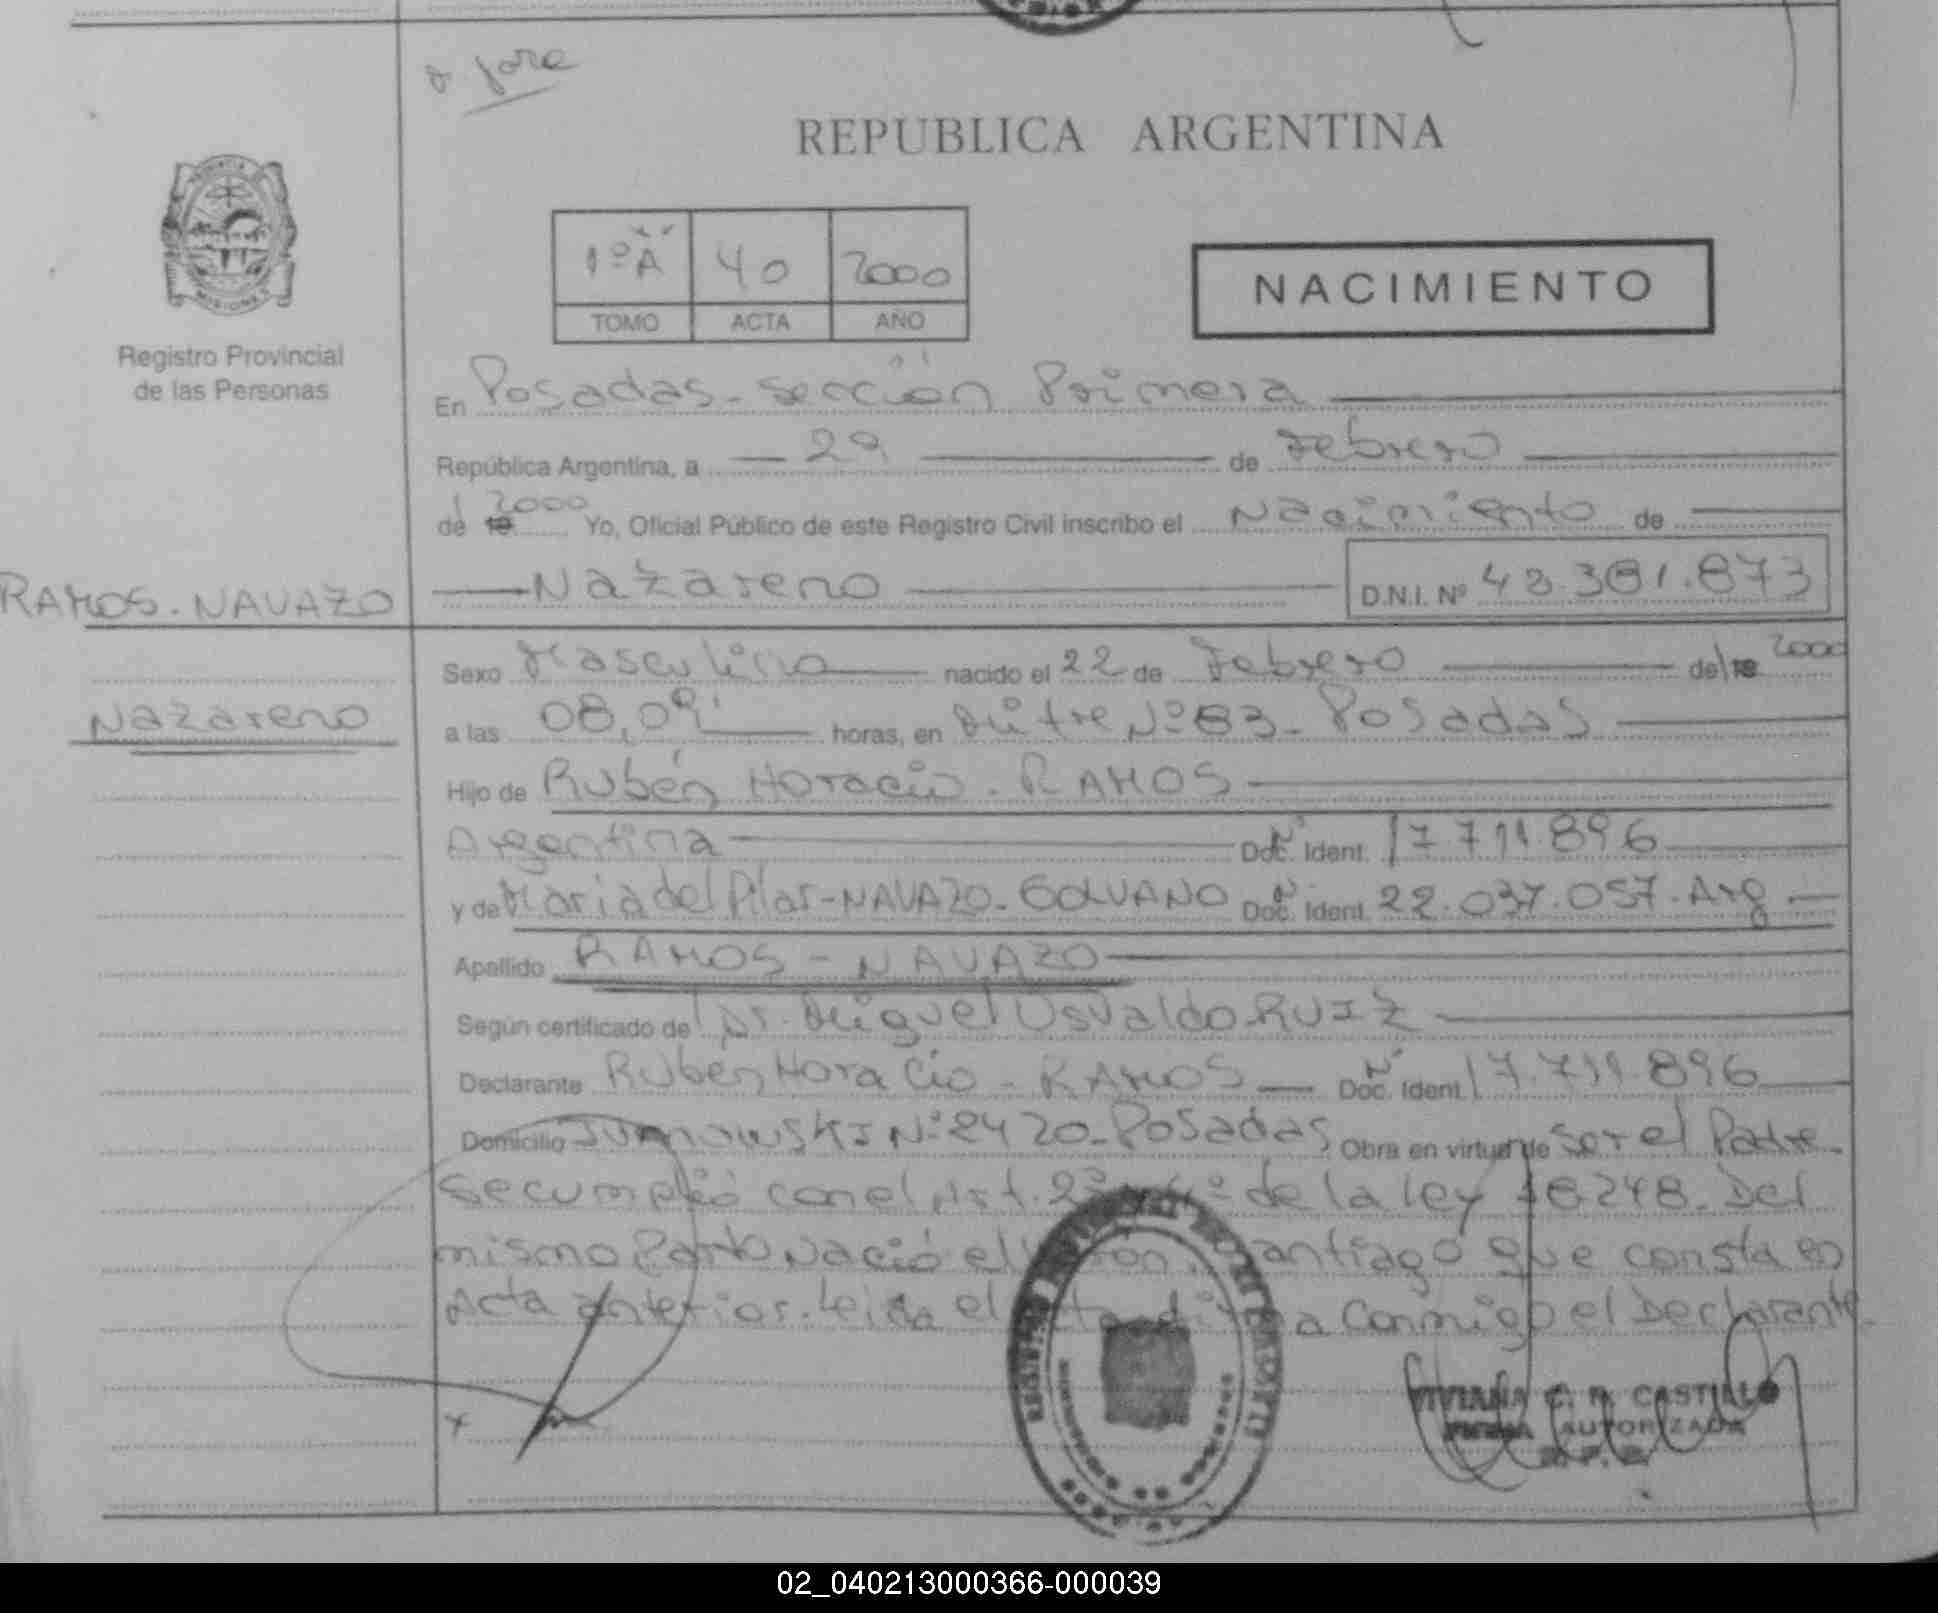 REPUBLICA ARGENTINA
PROVINCIA
MISIONES
Registro Provincial
de las Personas
1º "A" 40 2000
TOMO ACTA AÑO
NACIMIENTO
En Posadas - Sección Primera
República Argentina, a 29 de Febrero
del 2000 Yo, Oficial Público de este Registro Civil inscribo el Nacimiento de
RAMOS - NAVAZO
Nazareno D.N.I. Nº 42.381.873
Sexo Masculino nacido el 22 de Febrero del 2000
Nazareno
a las 08,09' horas, en Mitre Nº 83 - Posadas
Hijo de Rubén Horacio - RAMOS
Argentina Doc. Ident. Nº 17.711.896
y de Maria del Pilar - NAVAZO - GOLVANO Doc. Ident. Nº 22.037.057 - Arg
Apellido RAMOS - NAVAZO
Según certificado de Dr. Miguel Osvaldo RUIZ
Declarante Ruben Horacio - RAMOS Doc. Ident. Nº 17.711.896
Domicilio Nº 2420 - Posadas Obra en virtud de ser el Padre -
Se cumplió con el Art. 2º y 4º de la ley 18248. Del
mismo Parto Nació el Santiago que consta en
Acta anterior. Leida el Acta a conmigo el Declarante
VIVIANA CASTILLO
FIRMA AUTORIZADA
R.P.P.
02_040213000366-000039